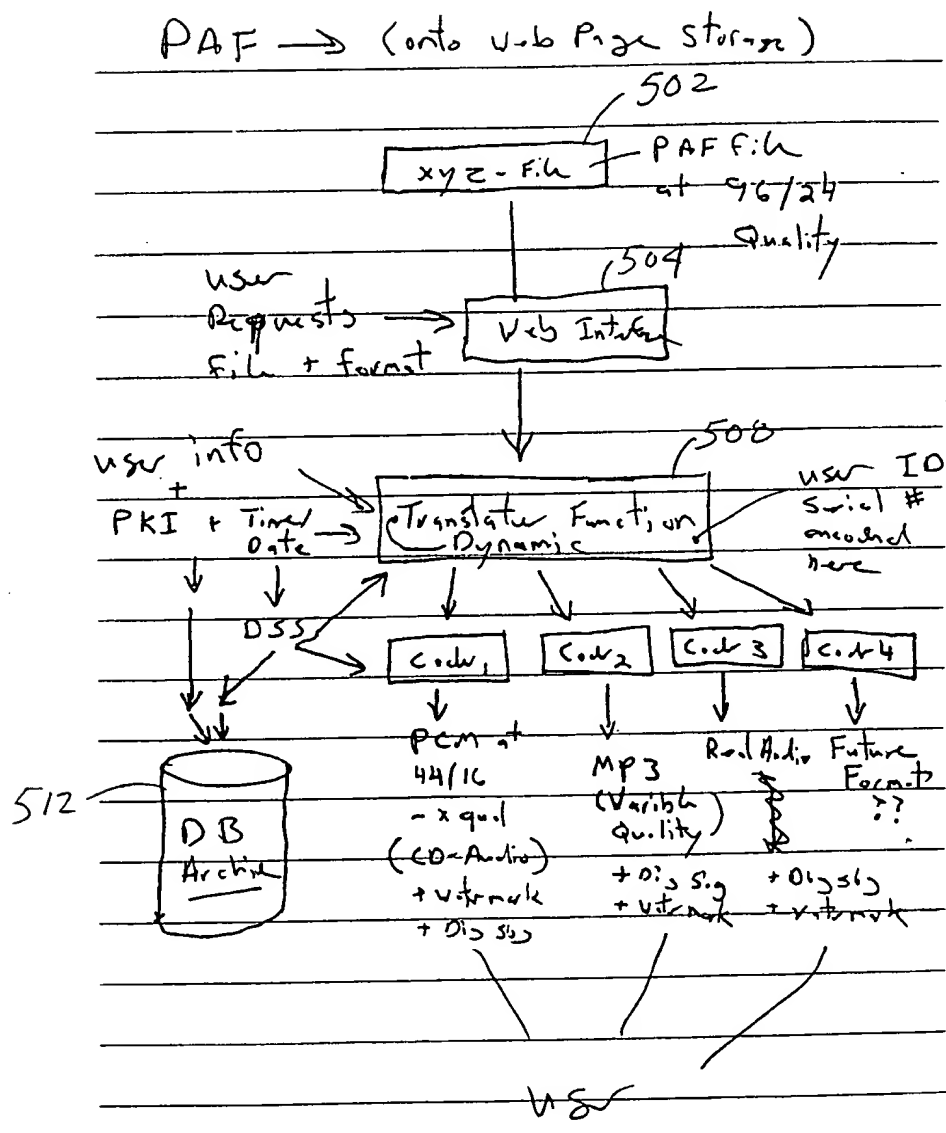 PAF → (onto Web Page Storage)
502
xyz-File
PAF File
at 96/24
Quality
504
User
Requests
File + format
Web Interface
508
user info
+
PKI + Time/
Date
Translator Function
Dynamic
user ID
Serial #
encoded
here
DSS
Codec 1
Codec 2
Codec 3
Codec 4
512
DB
Archive
PCM at
44/16
- x qual
(CD-Audio)
+ watermark
+ Dig sig
MP3
(Varible
Quality)
+ Dig sig
+ watermark
Real Audio
+ Dig sig
+ watermark
Future
Format
??
.
user